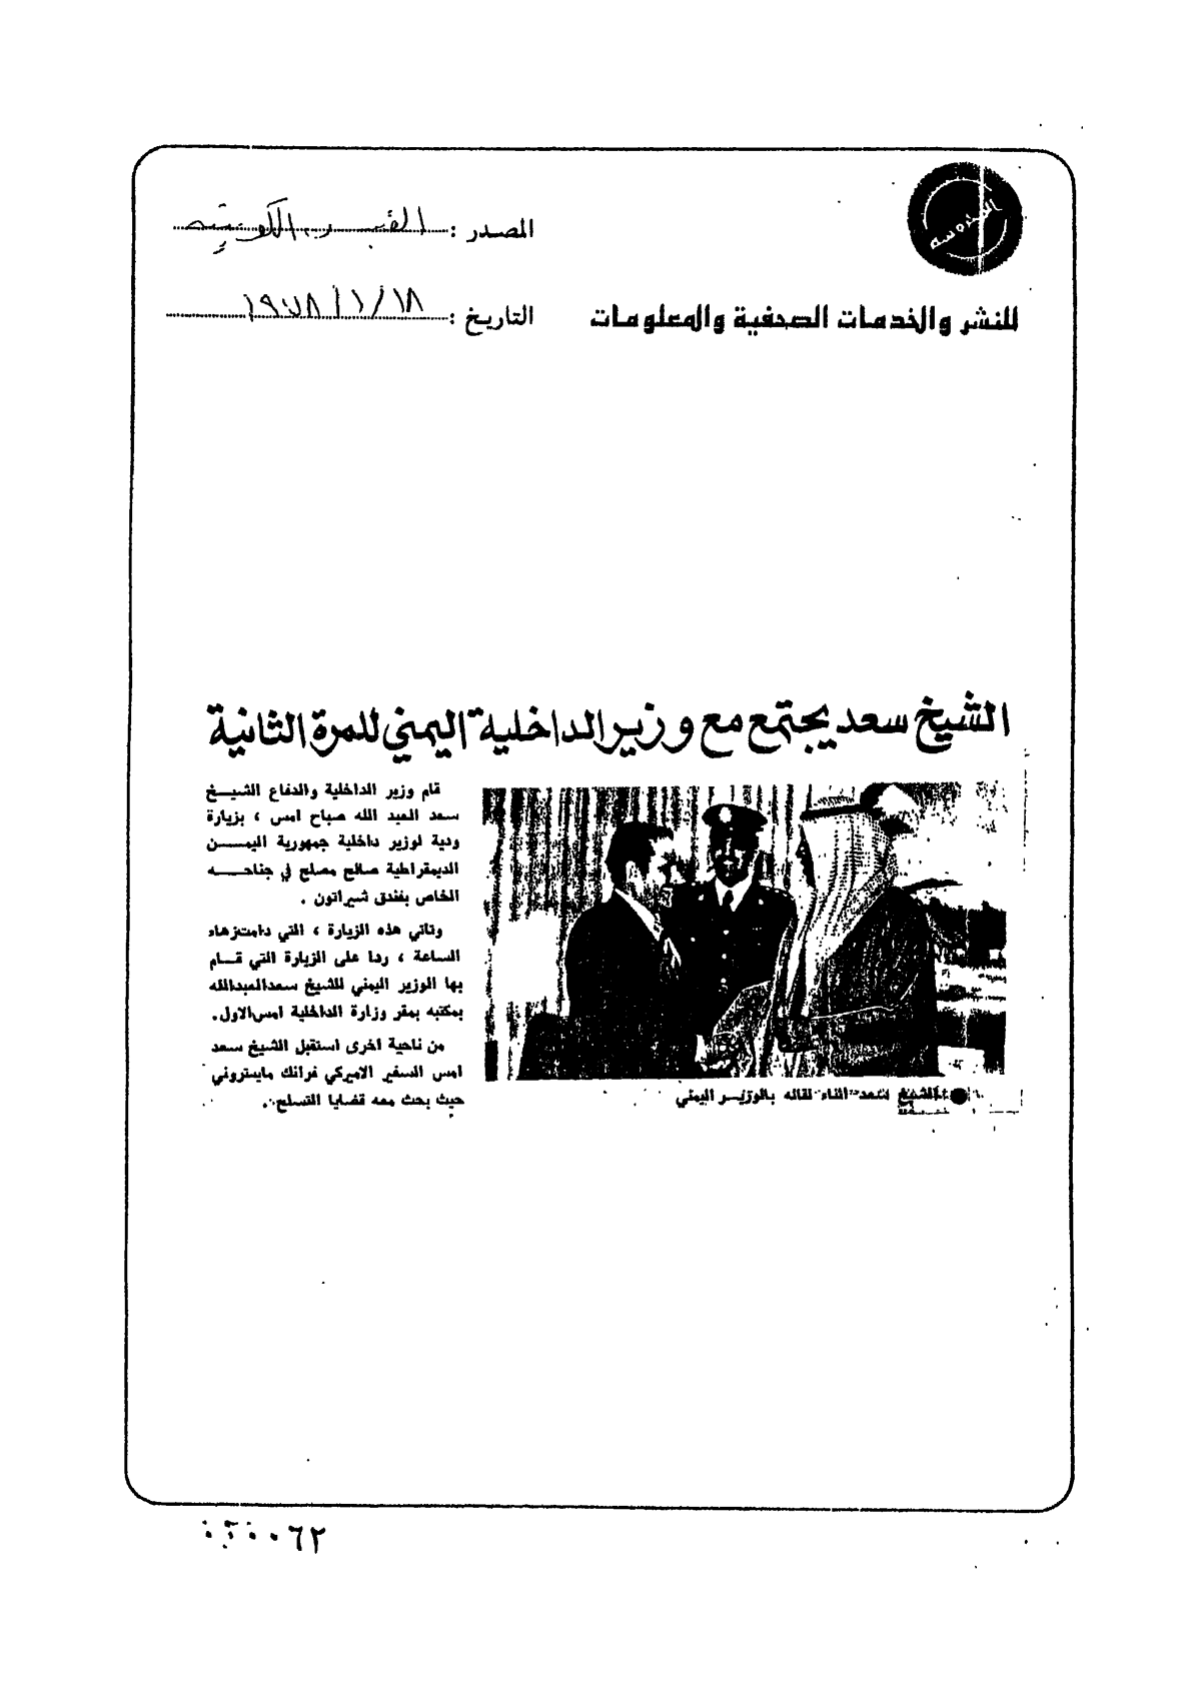 المصدر : القبس الكويتية
التاريخ : ١٩٧٨/١/١٨
للنشر والخدمات الصحفية والمعلومات
الشيخ سعد يجتمع مع وزير الداخلية اليمني للمرة الثانية
قام وزير الداخلية والدفاع الشيخ
سعد العبد الله صباح امس ، بزيارة
ودية لوزير داخلية جمهورية اليمن
الديمقراطية صالح مصلح في جناحه
الخاص بفندق شيراتون .
وتأتي هذه الزيارة ، التي دامت زهاء
الساعة ، ردا على الزيارة التي قام
بها الوزير اليمني للشيخ سعد العبدالله
بمكتبه بمقر وزارة الداخلية امس الاول.
من ناحية اخرى استقبل الشيخ سعد
امس السفير الاميركي فرانك مايستروني
حيث بحث معه قضايا التسلح .
● الشيخ سعد اثناء لقائه بالوزير اليمني